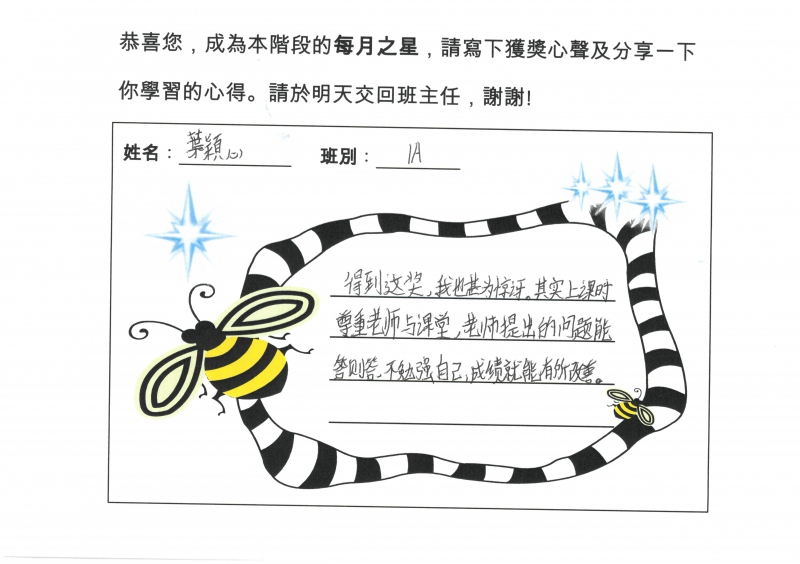 恭喜您，成為本階段的每月之星，請寫下獲獎心聲及分享一下
你學習的心得。請於明天交回班主任，謝謝!
姓名：葉穎(心) 班別：1A
得到这奖，我也甚为惊讶。其实上课时
尊重老师与课堂，老师提出的问题能
答则答，不勉强自己，成绩就能有所改善。